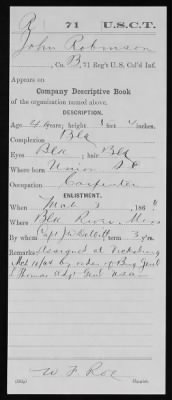 R | 71 | U.S.C.T.
John Robinson
, Co. B, 71 Reg't U.S. Col'd Inf.
Appears on
Company Descriptive Book
of the organization named above.
DESCRIPTION.
Age years; height feet 4 inches.
Complexion Blk
Eyes Blk; hair Blk
Where born Union
Occupation Carpenter
ENLISTMENT.
When Mch 3, 186
Where Blk River Miss
By whom Capt J. term 3 y'rs.
Remarks: Assigned at Vicksburg
by order of Brig Genl
Thomas Adjt Genl USA
W. F. Roe
Copyist.